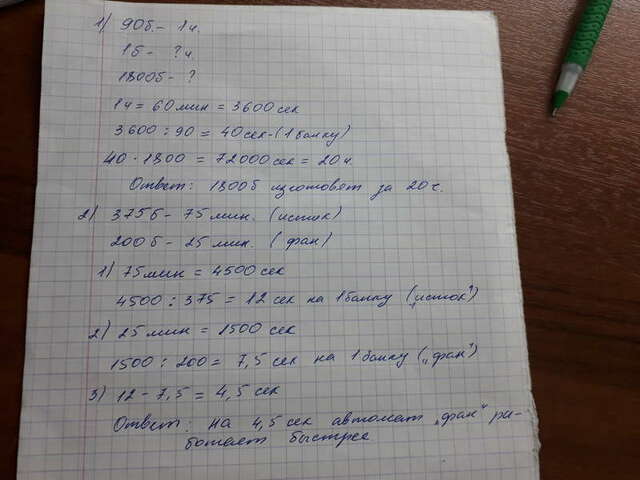 1) 90б - 1ч.
1б - ? ч.
1800б - ?
1ч = 60 мин = 3600 сек
3600 : 90 = 40 сек - (1 банку)
40 · 1800 = 72000 сек = 20 ч.
Ответ: 1800б изготовят за 20 ч.
2) 375б - 75 мин. (исток)
200б - 25 мин. (фан)
1) 75 мин = 4500 сек
4500 : 375 = 12 сек на 1 банку („исток")
2) 25 мин = 1500 сек
1500 : 200 = 7,5 сек на 1 банку („фан")
3) 12 - 7,5 = 4,5 сек
Ответ: на 4,5 сек автомат „фан" ра-
ботает быстрее